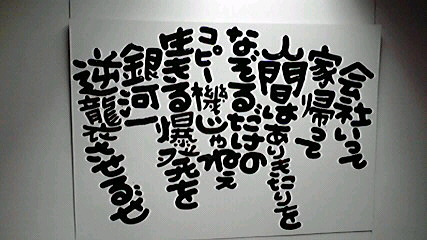 会社いって
家帰って
人間はありきたりを
なぞるだけの
コピー機じゃねぇ
生きる爆発を
銀河一
逆襲させるぜ